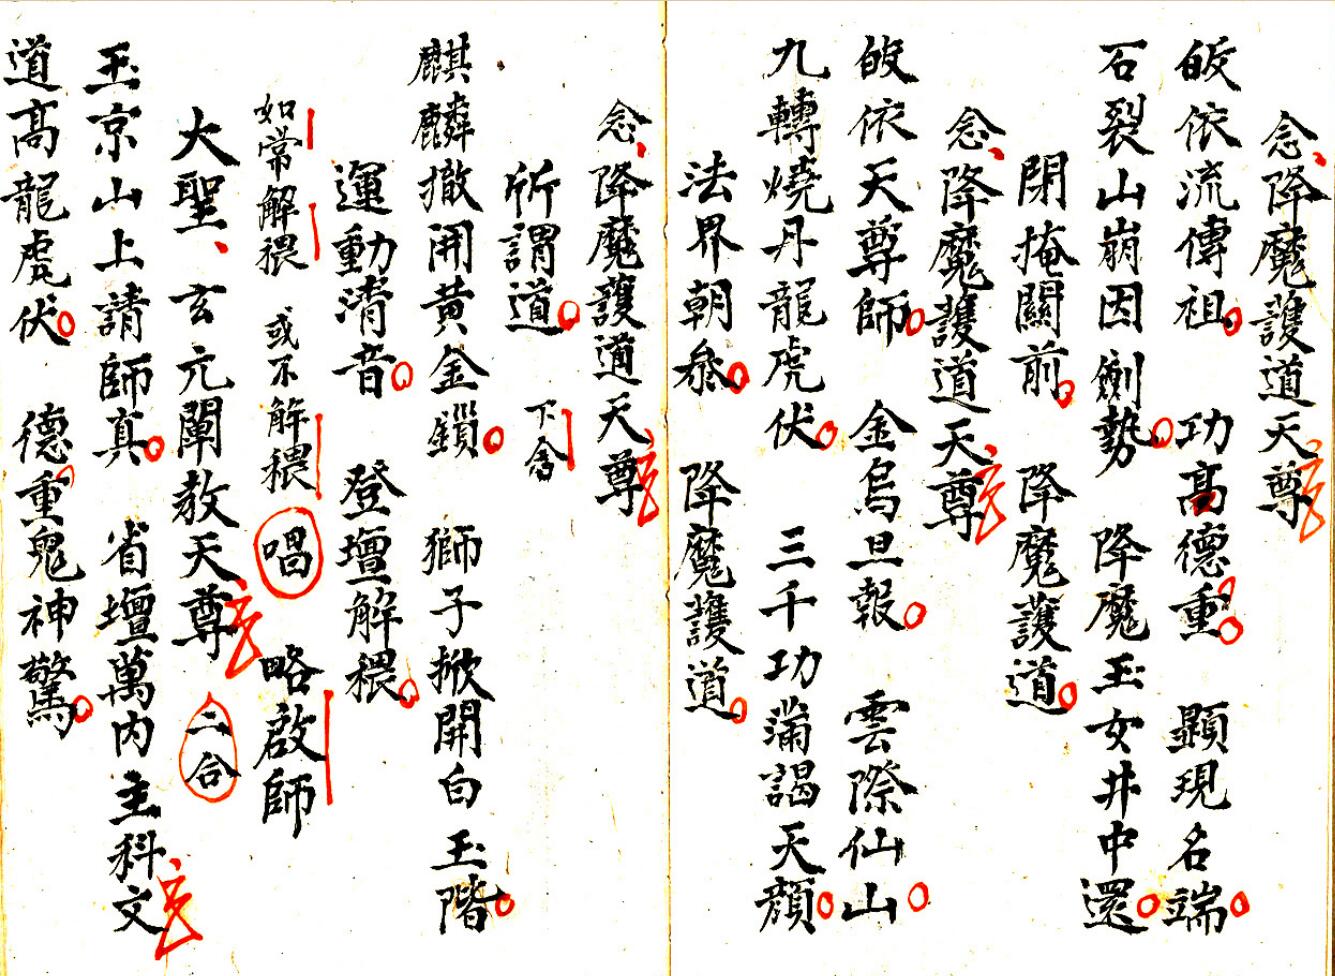 念降魔護道天尊
皈依流傳祖 功高德重 顯現名端
石裂山崩因劍勢 降魔玉女井中還
閉掩關前 降魔護道
念降魔護道天尊
皈依天尊師 金烏旦報 雲際仙山
九轉燒丹龍虎伏 三千功滿謁天顏
法界朝叅 降魔護道
念降魔護道天尊
所謂道 下畲
麒麟撤開黃金鎖 獅子掀開白玉階
運動清音 登壇解穢
如常解穢 或不解穢 唱 略啟師
大聖玄元闡教天尊 二合
玉京山上請師真 省壇萬內主科文
道高龍虎伏 德重鬼神驚